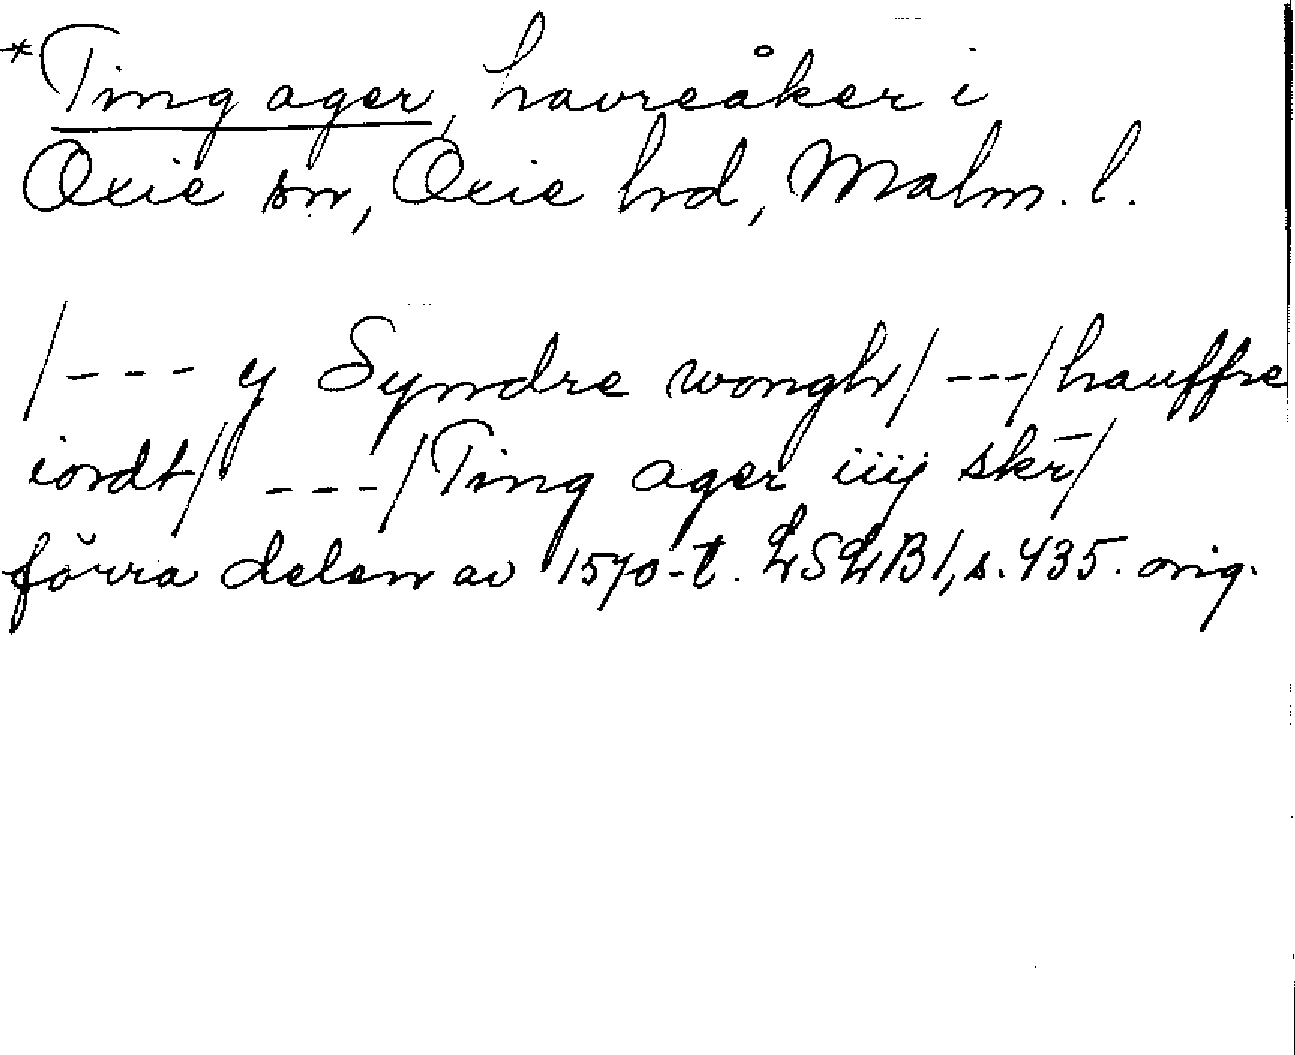 *Ting ager, havreåker i
Oxie sn, Oxie hd, Malm. l.
/--- y Syndre wongh/ ---/ hauffre
iordt/ ---/ Ting ager iiij skr̄/
förra delen av 1570-t. LSLB I, s. 435. orig.